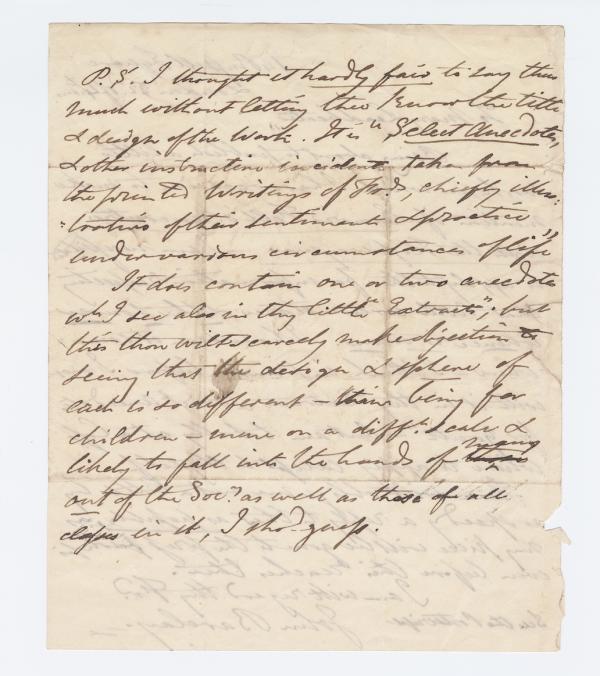 P.S. I thought it hardly fair to say thus
much without letting thee know the title
& design of the work. It is "Select Anecdotes,
& other instructive incidents taken from
the printed Writings of Frds, chiefly illus:
:trative of their sentiments & practice
under various circumstances of life"
It does contain one or two anecdotes
wh. I see also in thy little "Extracts"; but
this thou wilt scarcely make objection to
seeing that the design & sphere of
each is so different – thine being for
children – mine on a difft. scale &
likely to fall into the hands of many
out of the Socy. as well as those of all
classes in it, I shod. guess.
John Barclay